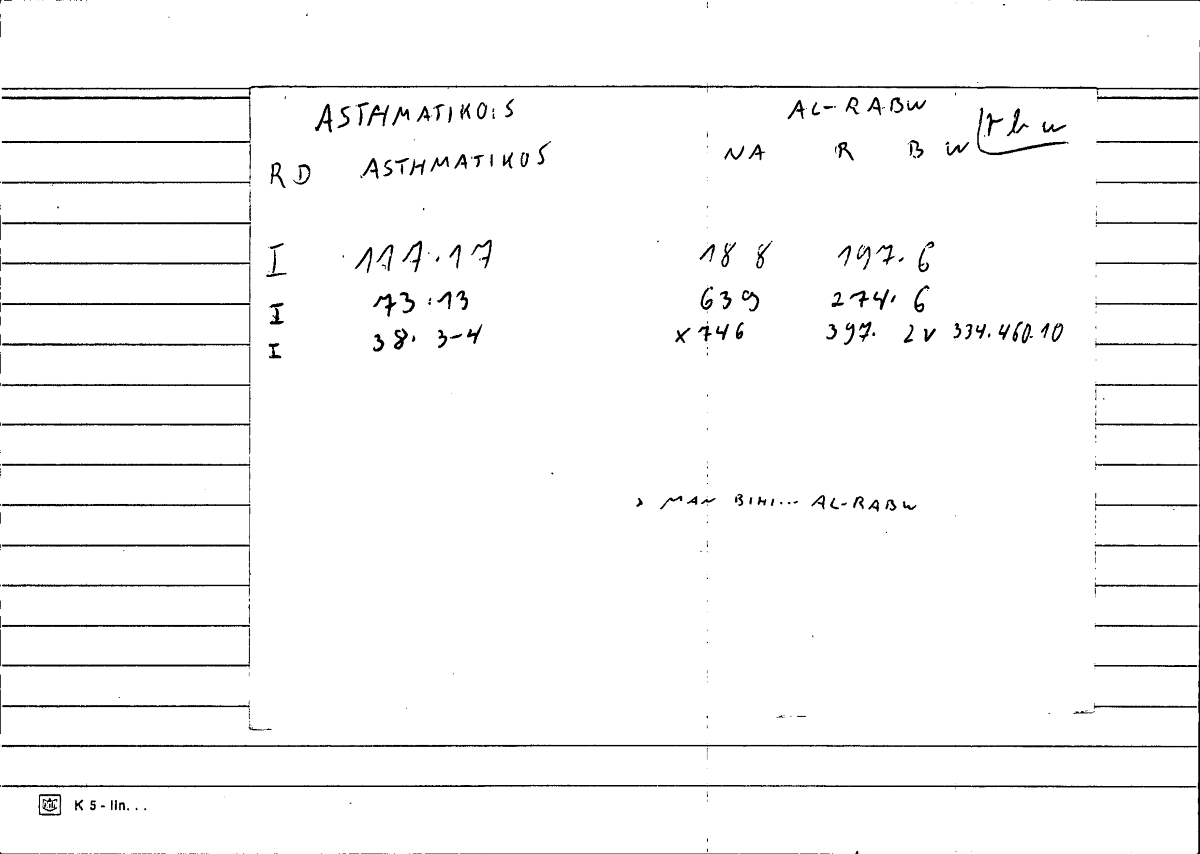 ASTHMATIKOIS AL-RABW rbw
RD ASTHMATIKOS NA R B W
I 117.17 188 197.6
I 73.13 639 274.6
I 38. 3-4 x 746 397. 2v 334.460.10
> MAN BIHI... AL-RABW
K 5 - lin. . .